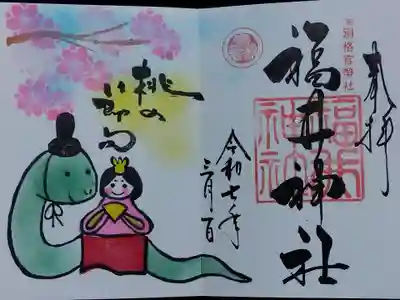 奉拝
別格官幣社
福井神社
福井神社
令和七年
三月一日
桃の
節句